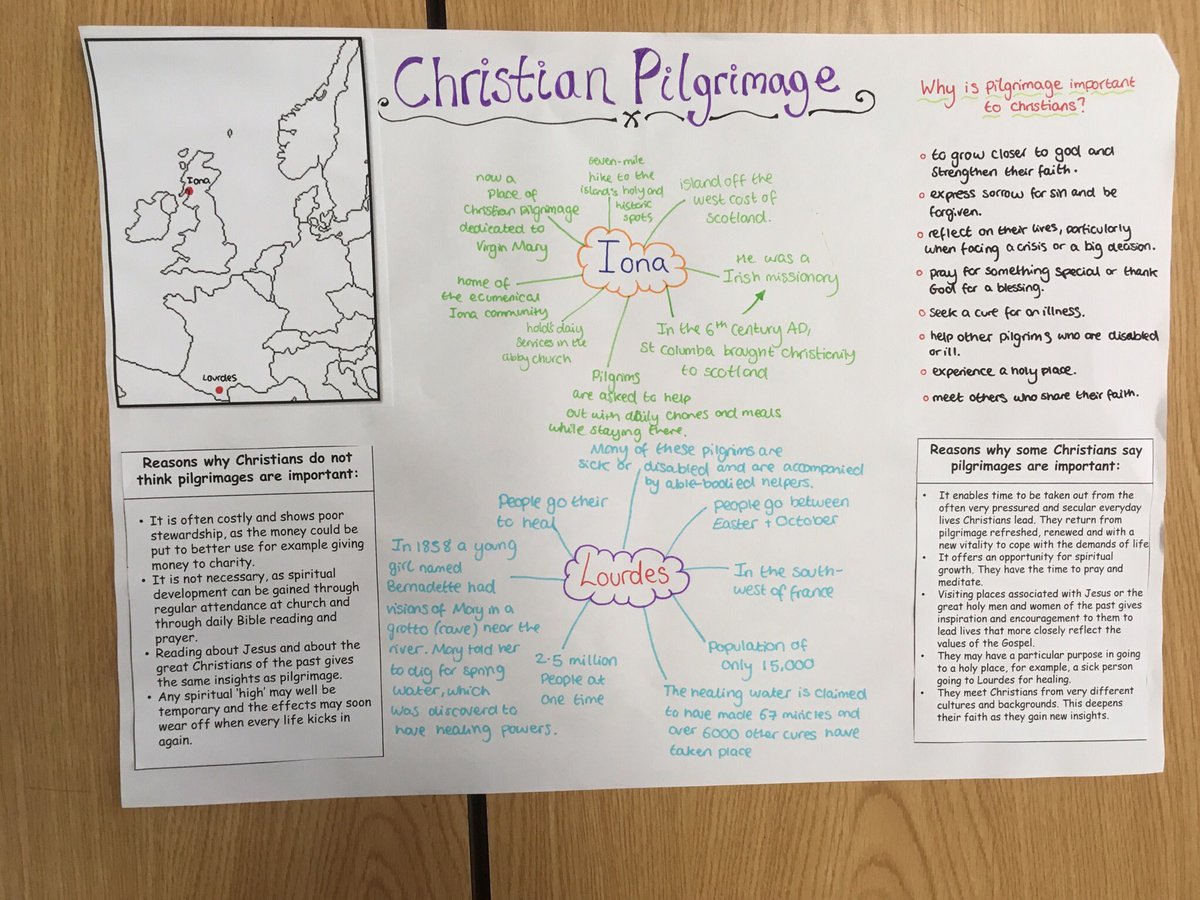 Christian Pilgrimage
Iona
Lourdes
Why is pilgrimage important
to christians?
to grow closer to god and
strengthen their faith.
express sorrow for sin and be
forgiven.
reflect on their lives, particularly
when facing a crisis or a big decision.
pray for something special or thank
God for a blessing.
seek a cure for an illness.
help other pilgrims who are disabled
or ill.
experience a holy place.
meet others who share their faith.
now a
Place of
Christian pilgrimage
dedicated to
Virgin Mary
seven-mile
hike to the
island's holy and
historic
spots
island off the
west cost of
Scotland.
Iona
He was a
Irish missionary
In the 6th Century AD,
St Columba brought christianity
to scotland
home of
the ecumenical
Iona community
holds daily
services in the
abby church
Pilgrims
are asked to help
out with daily chores and meals
while staying there.
Many of these pilgrims are
sick or disabled and are accompanied
by able-bodied helpers.
People go their
to heal
People go between
Easter + October
Lourdes
In the south-
west of france
Population of
only 15,000
The healing water is claimed
to have made 67 miricles and
over 6000 other cures have
taken place
2.5 million
People at
one time
In 1858 a young
girl named
Bernadette had
visions of Mary in a
grotto (cave) near the
river. Mary told her
to dig for spring
water, which
was discoverd to
have healing powers.
Reasons why Christians do not
think pilgrimages are important:
• It is often costly and shows poor
stewardship, as the money could be
put to better use for example giving
money to charity.
• It is not necessary, as spiritual
development can be gained through
regular attendance at church and
through daily Bible reading and
prayer.
• Reading about Jesus and about the
great Christians of the past gives
the same insights as pilgrimage.
• Any spiritual 'high' may well be
temporary and the effects may soon
wear off when every life kicks in
again.
Reasons why some Christians say
pilgrimages are important:
• It enables time to be taken out from the
often very pressured and secular everyday
lives Christians lead. They return from
pilgrimage refreshed, renewed and with a
new vitality to cope with the demands of life
• It offers an opportunity for spiritual
growth. They have the time to pray and
meditate.
• Visiting places associated with Jesus or the
great holy men and women of the past gives
inspiration and encouragement to them to
lead lives that more closely reflect the
values of the Gospel.
• They may have a particular purpose in going
to a holy place, for example, a sick person
going to Lourdes for healing.
• They meet Christians from very different
cultures and backgrounds. This deepens
their faith as they gain new insights.